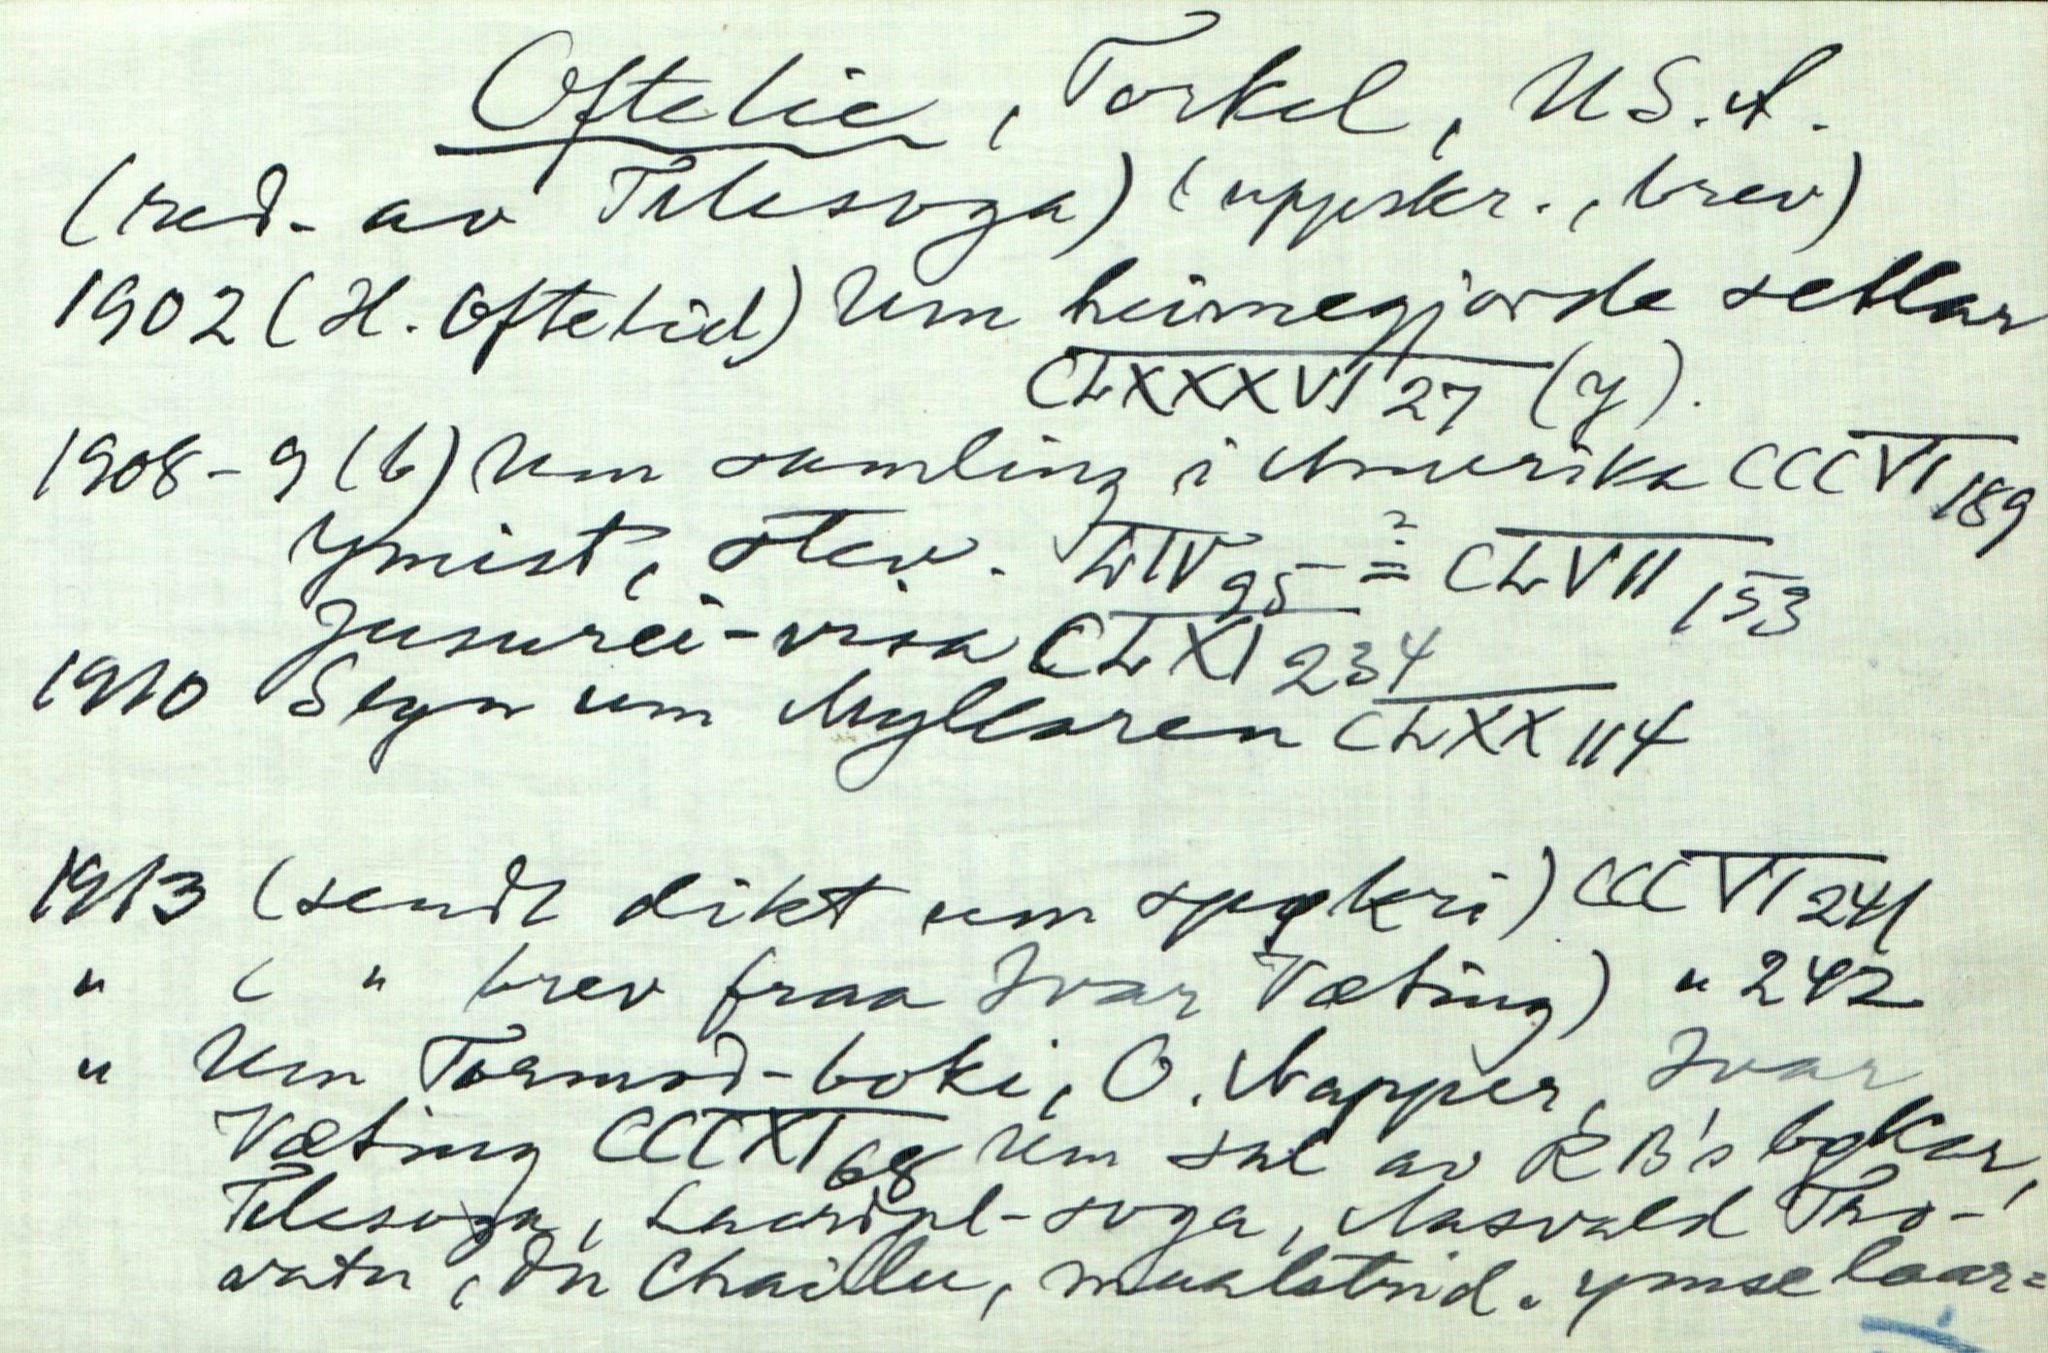 Oftelie, Torkel, U.S.A.
(red. av Telesoga) (uppskr., brev)
1902 (H. Oftelid) Um heimegjorde setlar
CLXXXVI 27 (y).
1908-9 (b) Um samling i Amerika CCCVI 189
Ymist, stev. LIV 95 ≟ CLVII 153
Jusurei-visa CLXI 234
1910 Segn um Myllaren CLXX 114
1913 (sendt dikt um spykri) CCCVI 241
" ( " brev fraa Ivar Væting) " 242
" Um Tormod-boki, O. Napper, Ivar
Væting CCCXI 68 Um sal av RB's bøkar,
Telesoga, Laurdøl-soga, Aasvald Tro-
vatn, du Chaillu, maalstrid. ymse laar=